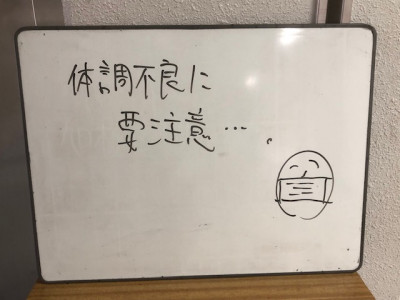 体調不良に
要注意…